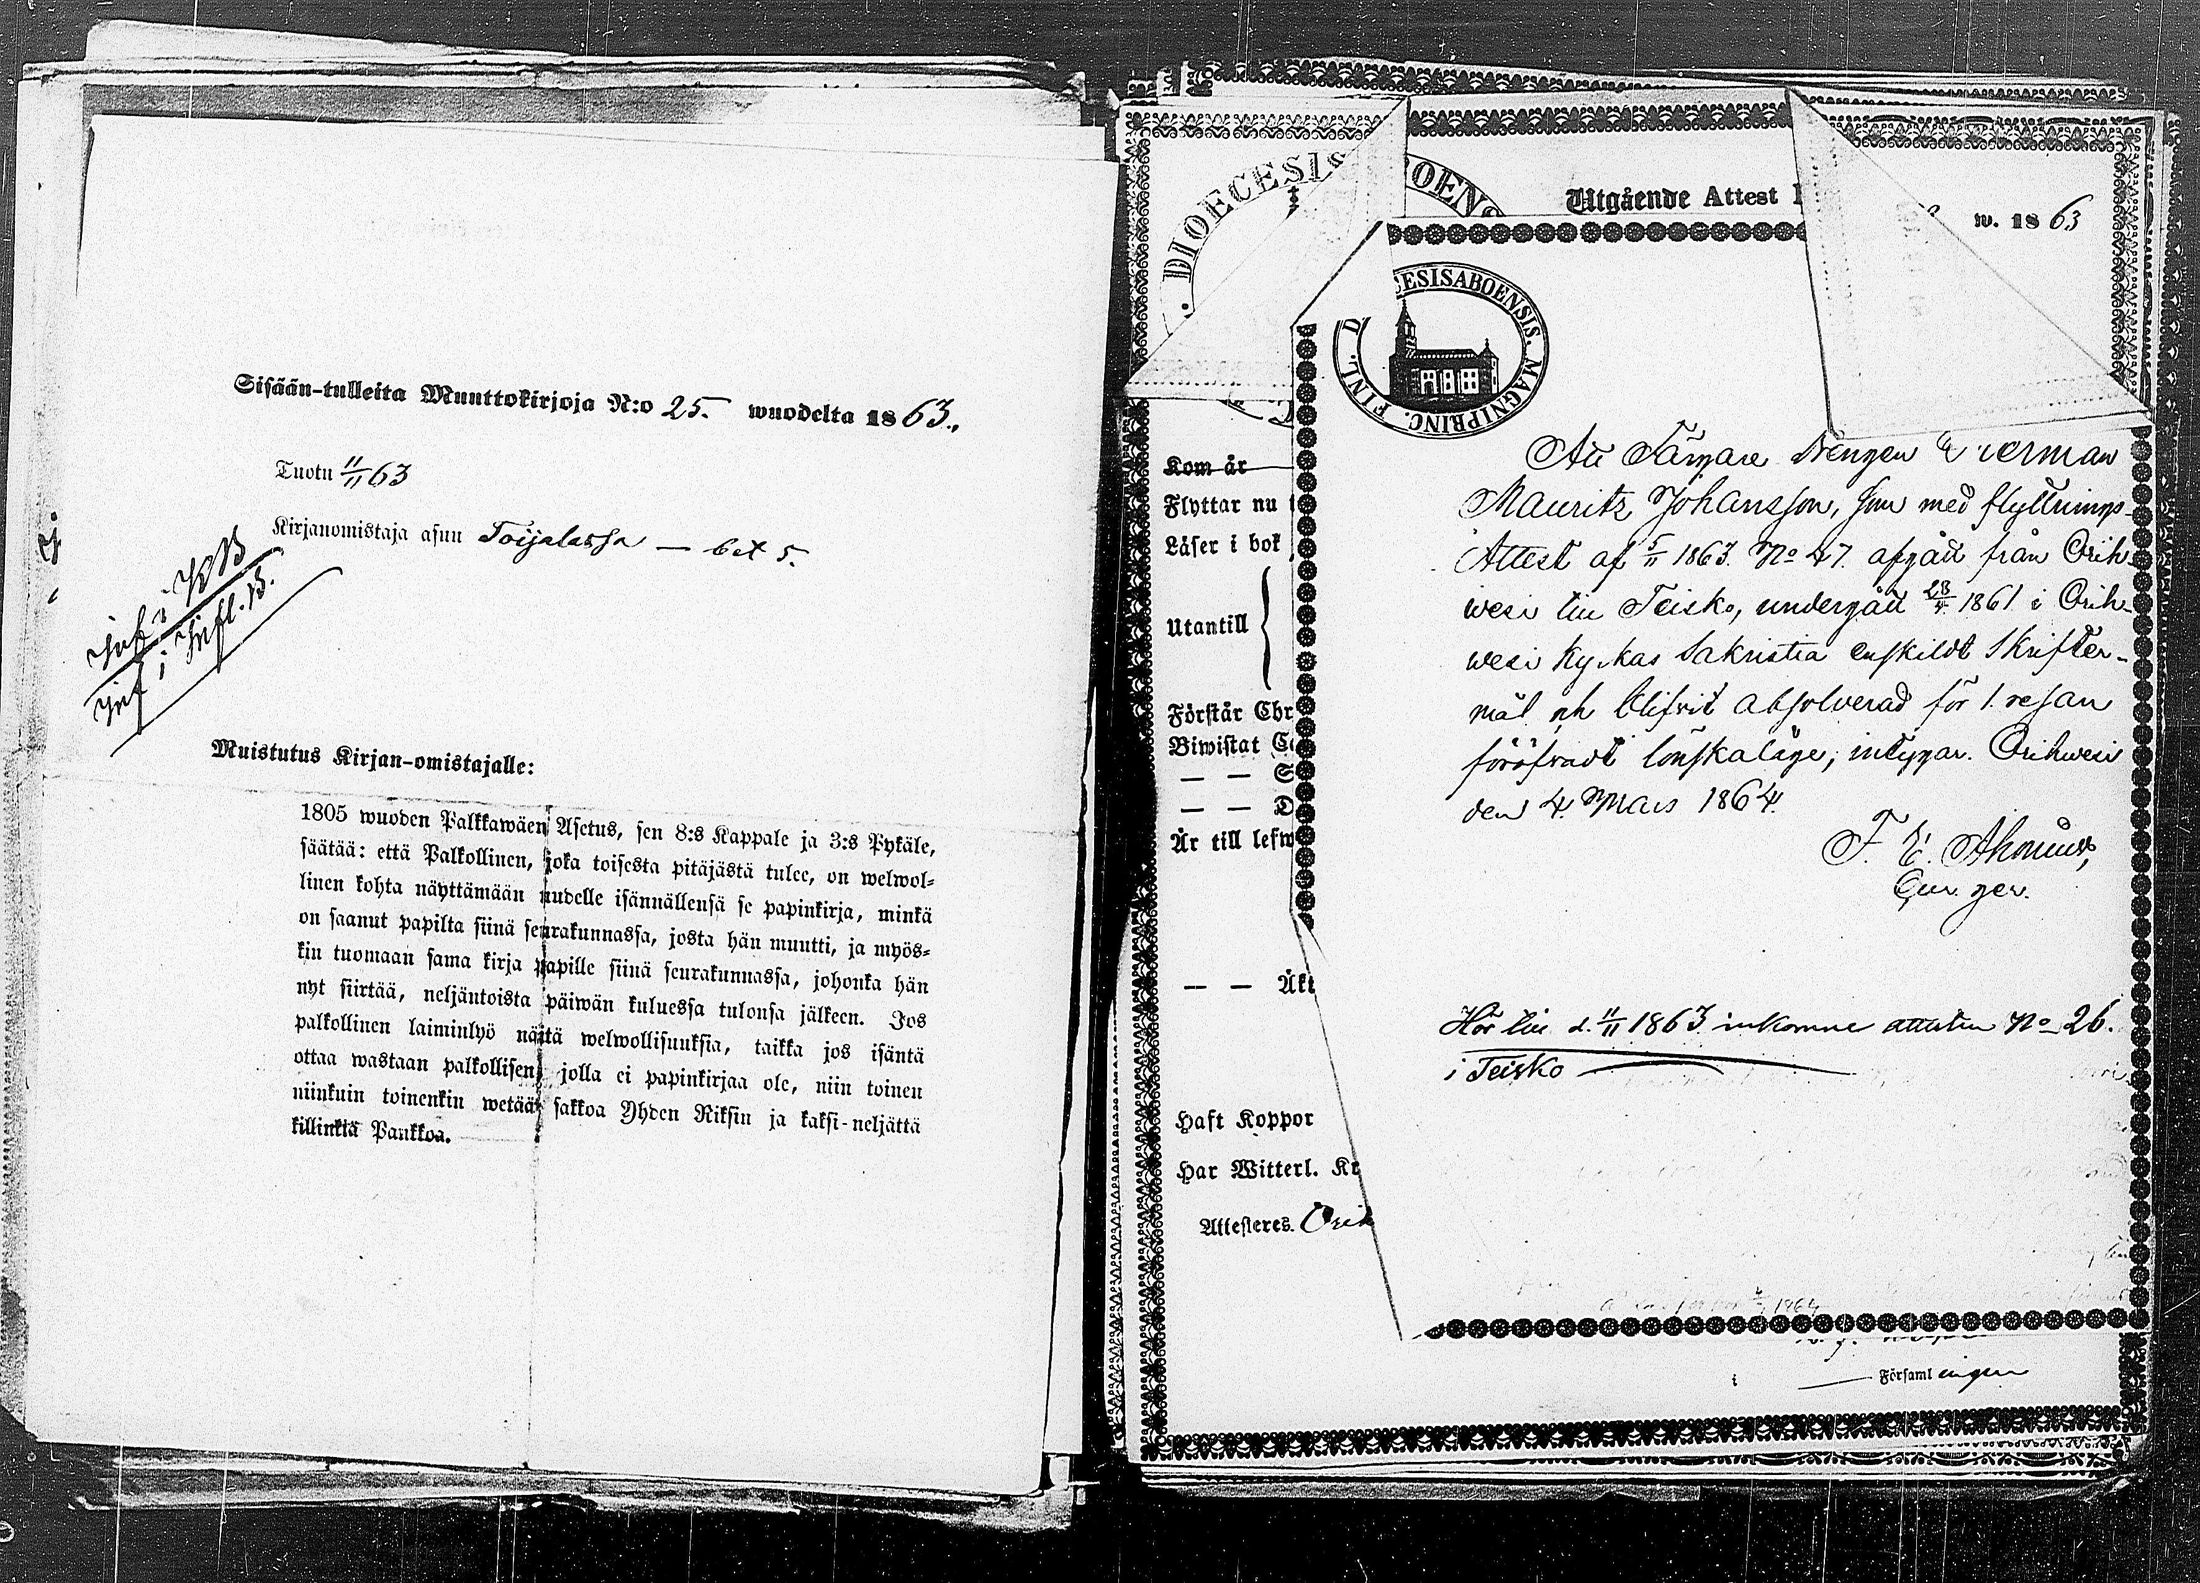 Sisään-tulleita Muuttokirjoja N:o 25. wuodelta 1863.
Tuotu 11/11 63
Kirjanomistaja asuu Toijalassa — bet 5.
Inf i KB
Inf i Infl. B.
Muistutus Kirjan-omistajalle:
1805 wuoden Palkkawäen Asetus, sen 8:s Kappale ja 3:s Pykäle,
säätää: että Palkollinen, joka toisesta pitäjästä tulee, on welwol-
linen kohta näyttämään uudelle isännällensä se papinkirja, minkä
on saanut papilta siinä seurakunnassa, josta hän muutti, ja myös-
kin tuomaan sama kirja papille siinä seurakunnassa, johonka hän
nyt siirtää, neljäntoista päiwän kuluessa tulonsa jälkeen. Jos
palkollinen laiminlyö näitä welwollisuuksia, taikka jos isäntä
ottaa wastaan palkollisen, jolla ei papinkirjaa ole, niin toinen
niinkuin toinenkin wetää sakkoa Yhden Riksin ja kaksi-neljättä
killinkiä Pankkoa.
DIOECESIS OENS
Utgående Attest
w. 1863
D ESISABOENSIS. MAGNIPRINC. FINL.
Att Färgare Drengen Herman
Mauritz Johansson, som med flyttnings-
Attest af 5/11 1863. No 47. afgått från Orih-
wesi till Teisko, undergått 28/4 1861 i Orih-
wesi Kyrkas Sakristia enskildt Skrifter-
mål och blifvit absolverad för 1. resan
föröfvadt lönskaläge; intygar. Orihwesi
den 4 Mars 1864.
F. E. Ahonius,
Cur. ger.
Hör till d. 11/11 1863 inkomne attesten No 26.
i Teisko
Kom år
Flyttar nu
Läser i bok
Utantill
Förstår Chr
Biwistat
— —
— — D
Är till lefw
— — Äkt
Haft Koppor
Har Witterl. Kr
Attesteres. Orih
1864
i — Församlingen